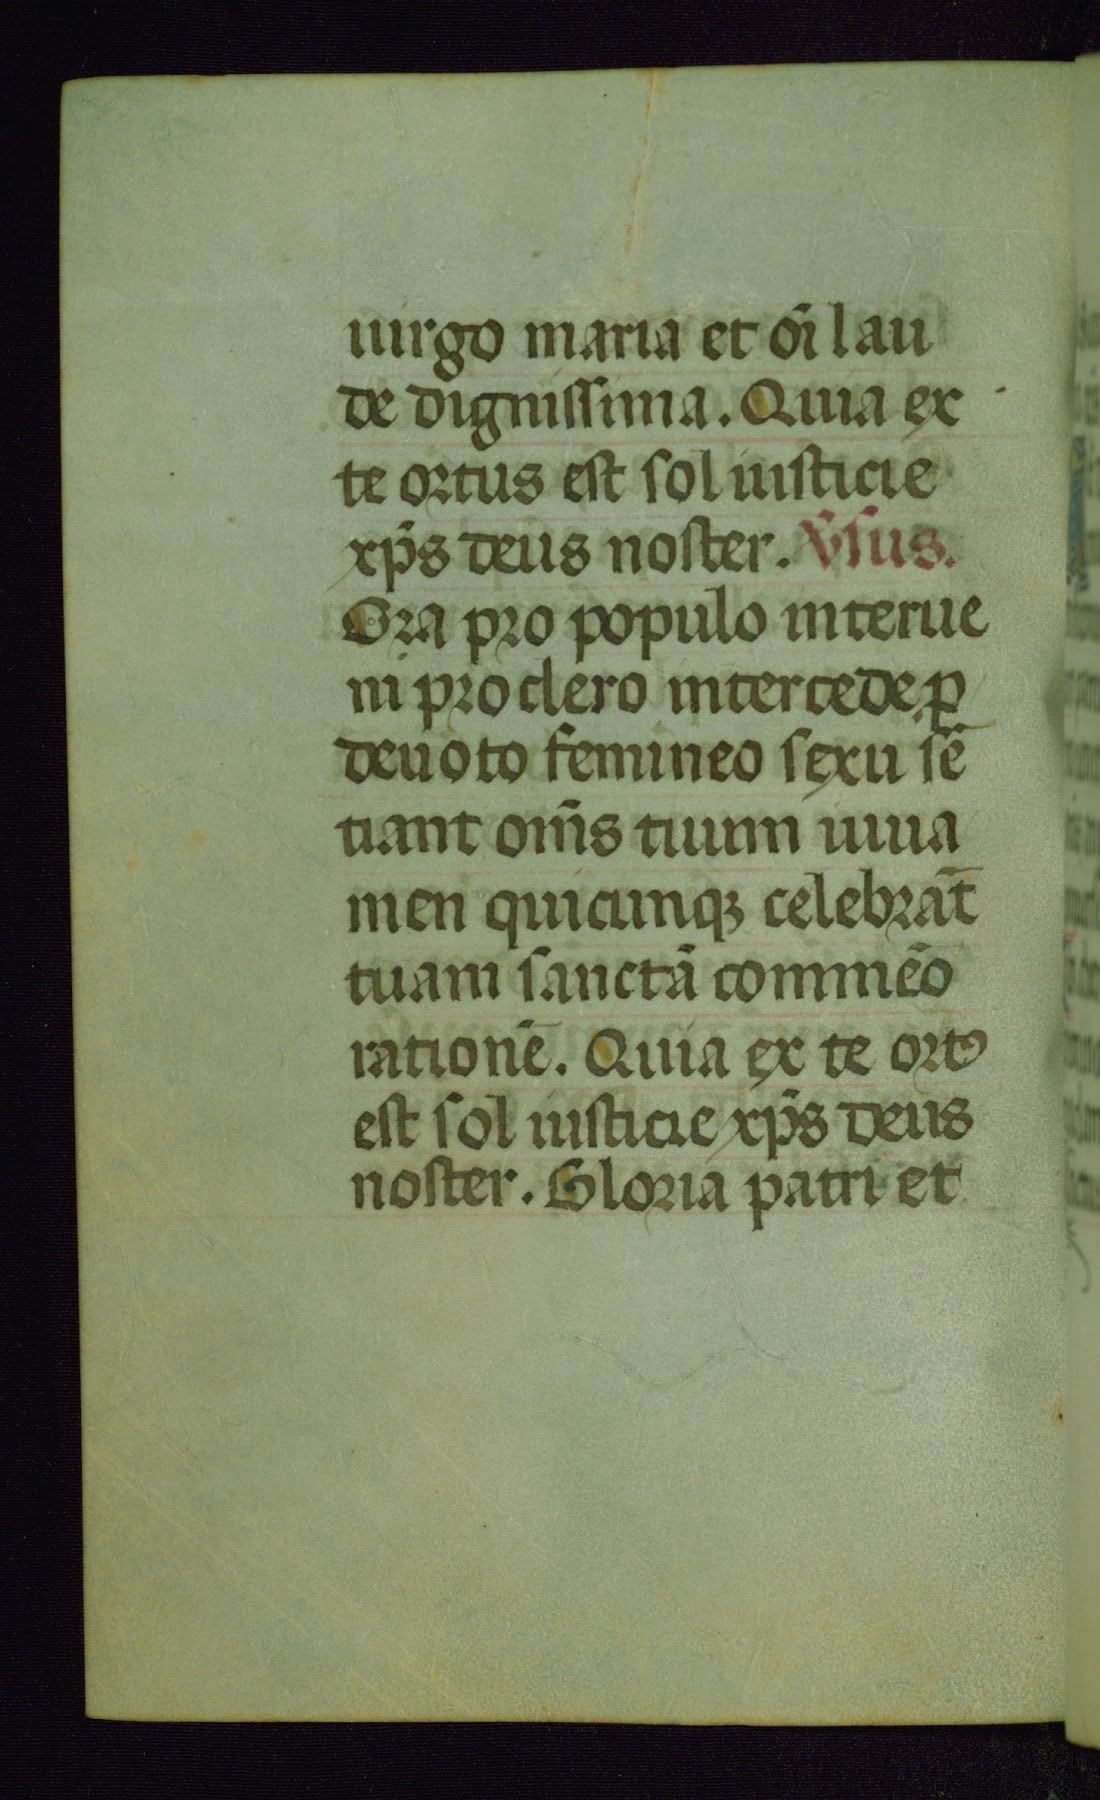 uirgo maria et oī lau
de dignissima. Quia ex
te ortus est sol iusticie
xp̄s deus noster. v̄sus.
Ora pro populo interue
ni pro clero intercede p̱
deuoto femineo sexu sē
tiant om̄s tuum iuua
men quicunqꝫ celebrāt
tuam sanctā commēo
rationē. Quia ex te ortꝰ
est sol iusticie xp̄s deus
noster. Gloria patri et